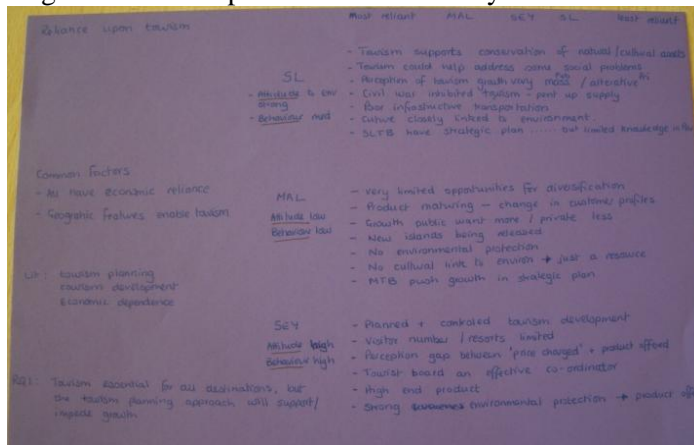 Reliance upon tourism
Most reliant MAL SEY SL least reliant
SL
Attitude to env strong
Behaviour med
- Tourism supports conservation of natural/cultural assets
- Tourism could help address some social problems
- Perception of tourism growth very mass / alternative
- Civil war inhibited tourism - pent up supply
- Poor infrastructure transportation
- Culture closely linked to environment.
- SLTB have strategic plan ...... but limited knowledge
Common factors
- All have economic reliance
- Geographic features enable tourism
Lit: tourism planning
tourism development
economic dependence
MAL
Attitude low
Behaviour low
- very limited opportunities for diversification
- Product maturing - change in customer profiles
- Growth public want more / private less
- New islands being released
- No environmental protection
- No cultural link to environ → just a resource
- MTB push growth in strategic plan
SEY
Attitude high
Behaviour high
- Planned + controled tourism development
- Visitor number / resorts limited
- Perception gap between 'price charged' + product offered
- Tourist board an effective co-ordinator
- High end product
- Strong environmental protection → product
RQ1: Tourism essential for all destinations, but
the tourism planning approach will support/
impede growth